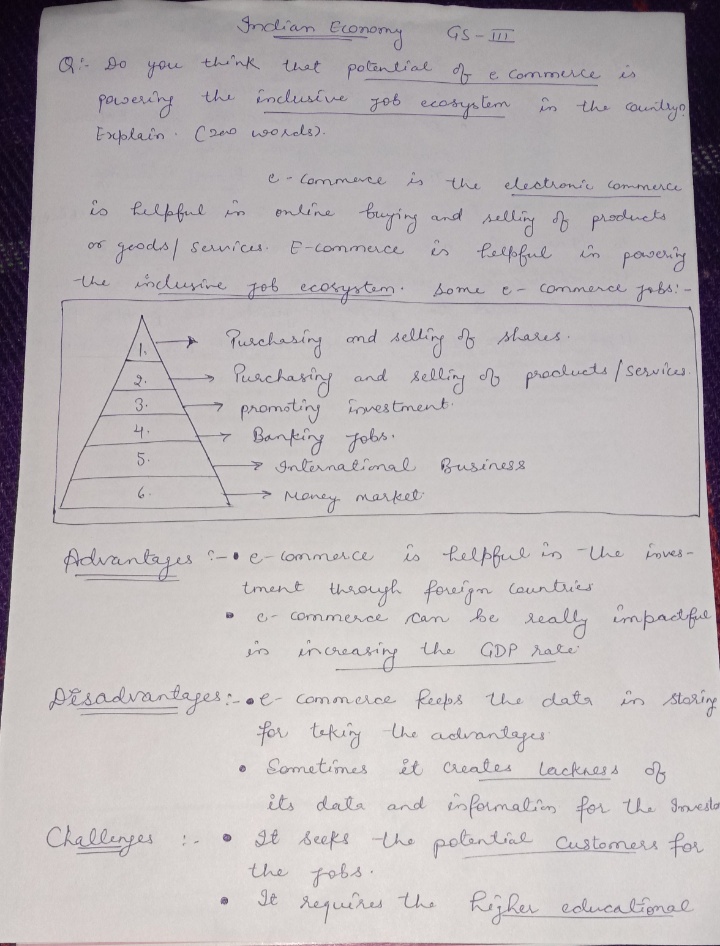 Indian Economy GS-III
Q:- Do you think that potential of e commerce is
powering the inclusive job ecosystem in the country?
Explain. (200 words).
e-commerce is the electronic commerce
is helpful in online buying and selling of products
or goods/services. E-commerce is helpful in powering
the inclusive job ecosystem. Some e-commerce jobs:-
1. → Purchasing and selling of shares.
2. → Purchasing and selling of products/services.
3. → promoting investment.
4. → Banking jobs.
5. → International Business
6. → Money market.
Advantages :- • e-commerce is helpful in the inves-
tment through foreign countries
• e-commerce can be really impactful
in increasing the GDP rate.
Disadvantages:- • e-commerce keeps the data in storing
for teking the advantages
• Sometimes it creates lackness of
its data and information for the Investo
Challenges :- • It seeks the potential customers for
the jobs.
• It requires the higher educational